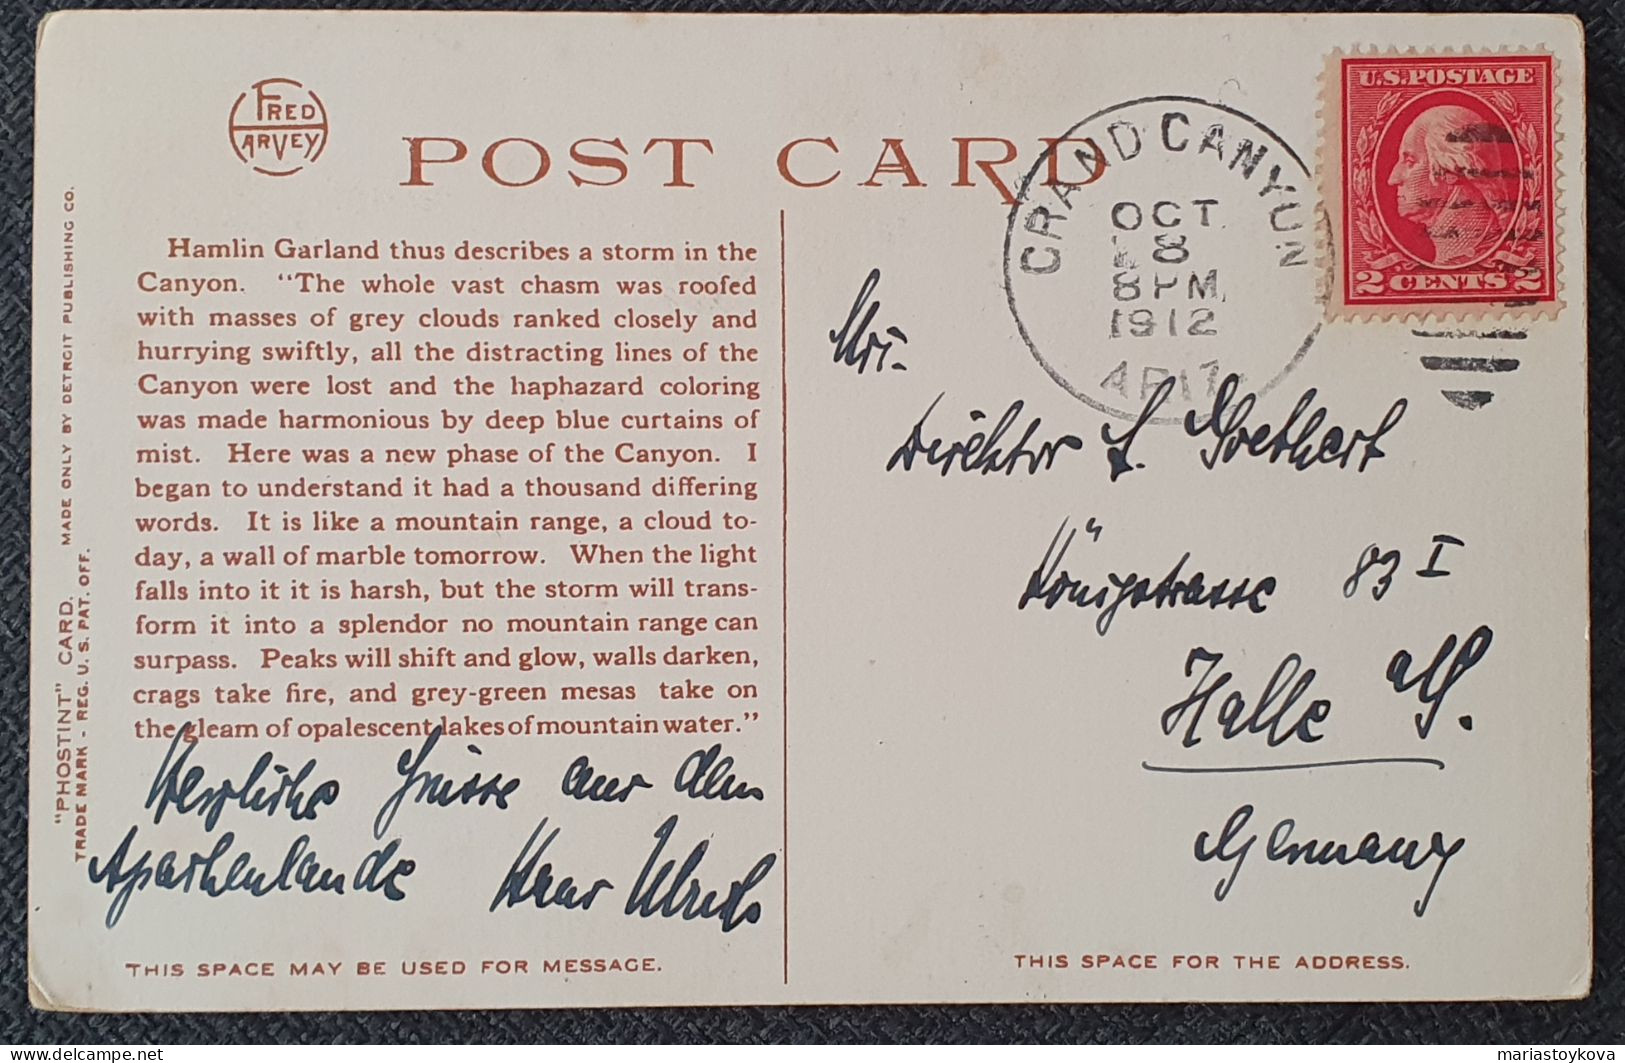 FRED
HARVEY
POST CARD
Hamlin Garland thus describes a storm in the
Canyon. "The whole vast chasm was roofed
with masses of grey clouds ranked closely and
hurrying swiftly, all the distracting lines of the
Canyon were lost and the haphazard coloring
was made harmonious by deep blue curtains of
mist. Here was a new phase of the Canyon. I
began to understand it had a thousand differing
words. It is like a mountain range, a cloud to-
day, a wall of marble tomorrow. When the light
falls into it it is harsh, but the storm will trans-
form it into a splendor no mountain range can
surpass. Peaks will shift and glow, walls darken,
crags take fire, and grey-green mesas take on
the gleam of opalescent lakes of mountain water."
Herzliche Grüsse aus dem
Apachenlande Hans Ulrich
THIS SPACE MAY BE USED FOR MESSAGE.
"PHOSTINT" CARD. MADE ONLY BY DETROIT PUBLISHING CO.
TRADE MARK - REG. U. S. PAT. OFF.
GRAND CANYON
OCT
8
8 PM
1912
ARIZ.
U.S. POSTAGE
2 CENTS 2
Direktor L.
Königstrasse 83 I
Halle a/S.
Germany
THIS SPACE FOR THE ADDRESS.
delcampe.net
mariastoykova